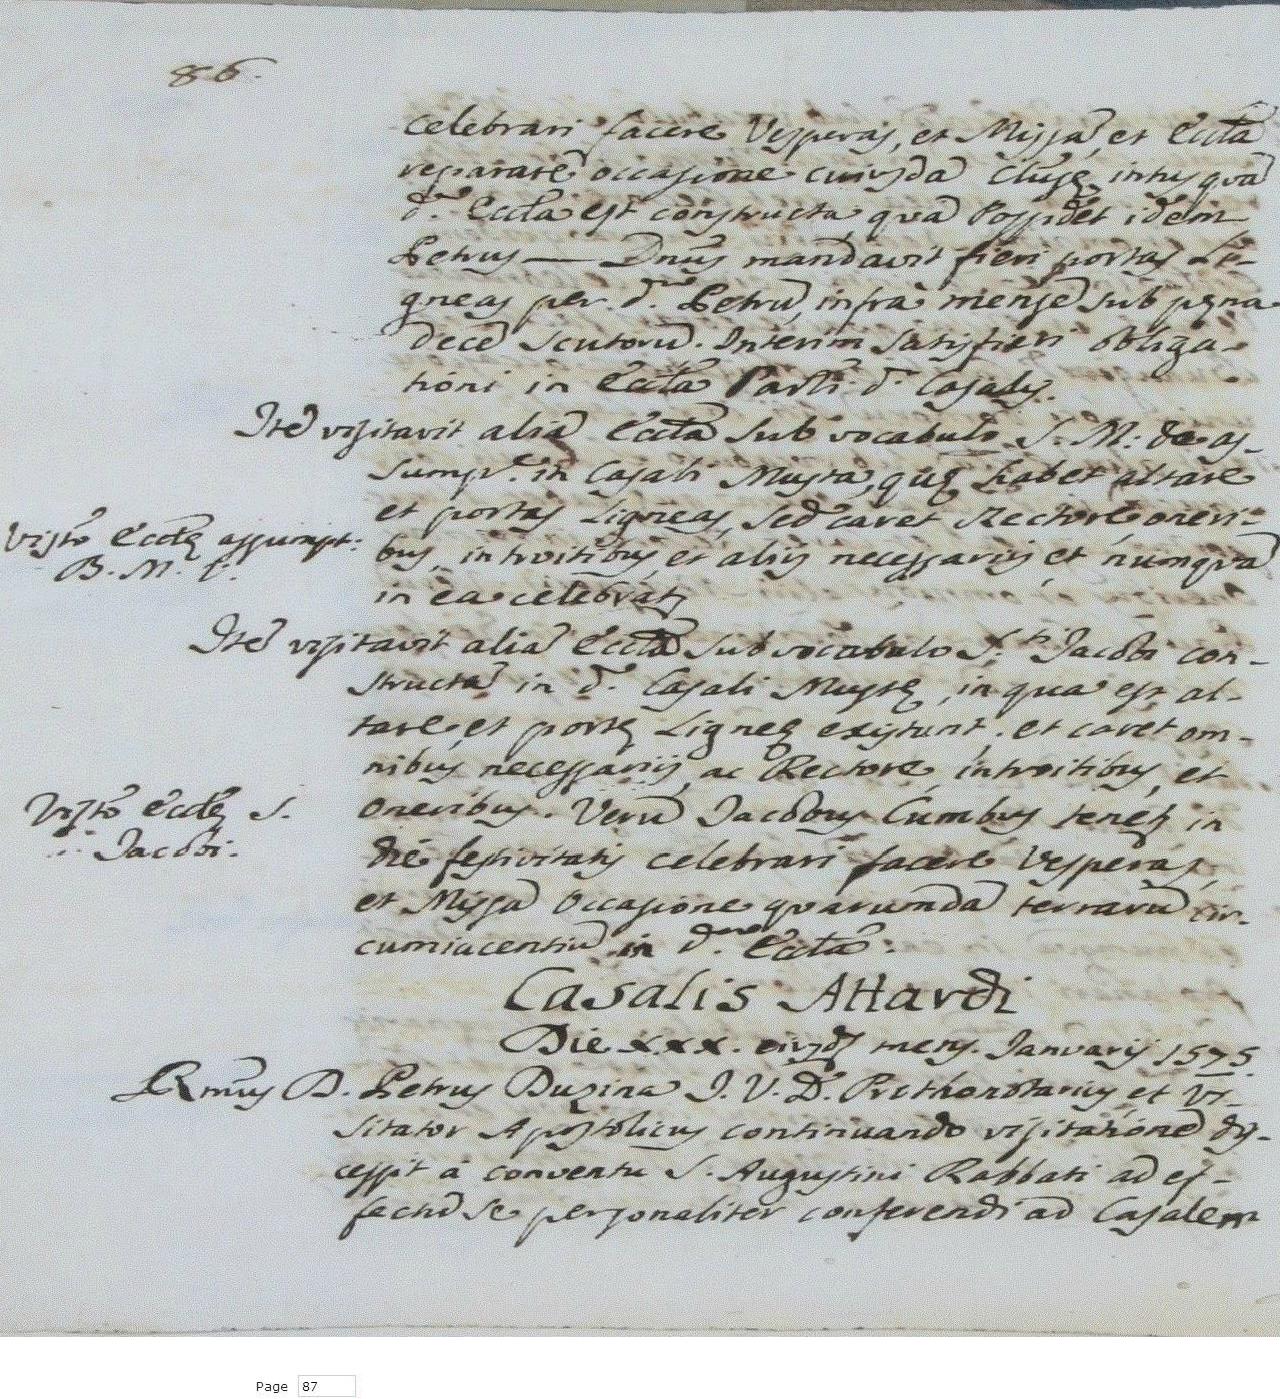 86.
celebrari facere Vesperas, et Missã, et Eccĩa
reparare occasione cuiusdã clusę intus quã
d.ª Eccĩa est constructa, quã possidet idem
Petrus — Dnũs mandavit fieri portas Li-
gneas per d.um Petrũ, infra mensẽ sub pęna
decẽ scutorũ. Interim satisfieri obliga-
tioni in Eccĩa Parlĩ d.ⁱ Casalis.
Itẽ visitavit aliã Eccĩã sub vocabulo S. M. de as-
sumpt.e in Casali Musta, quę habet altare
et portas Ligneas, sed caret Rectore oneri-
bus, introitibus, et alijs necessarijs et numquã
in ea celebratᷣ
Visĩo Eccĩę assumpt:
B. M. V.
Itẽ visitavit aliã Eccĩã sub vocabulo S.ti Jacobi con-
structã in d.º Casali Mustę, in qua est al-
tare et portę Ligneę existunt. et caret om-
nibus necessarijs, ac Rectore, introitibus, et
oneribus. Verũ Jacobus Cumbus tenetᷣ in
Visĩo Eccĩę S.
Jacobi.
die festivitatis celebrari facere Vesperas,
et Missã occasione quarumdã terrarũ cir-
cumiacentiũ in d.ª Eccĩa:
Casalis Attardi
Die xxx. eiusd. mens. Januarij 1575.
Rmũs D. Petrus Duzina J. V. D. Prothonotarius et Vi-
sitator Apostolicus continuando visitationẽ dis-
cessit a conventu S. Augustini Rabbati ad ef-
fectũ se personaliter conferendi ad Casalem
Page 87